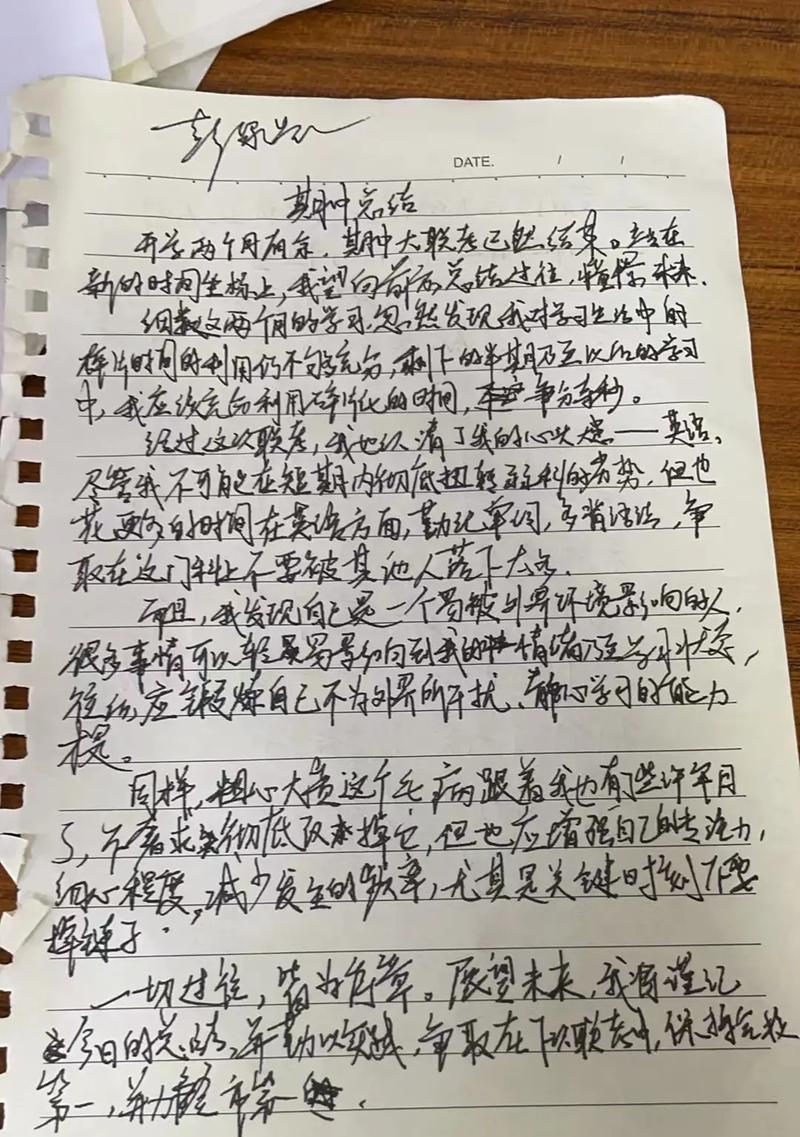 彭
DATE. / /
期中总结
开学两个月有余，期中大联考已然结束。站在
新的时间坐标上，我望向前方总结过往，憧憬未来.
细数这两个月的学习，忽然发现我对学习生活中的
碎片时间的利用仍不够充分，剩下的半期乃至以后的学习
中，我应该充分利用碎片化的时间，争分夺秒。
经过这次联考，我也认清了我的心头大患——英语。
尽管我不可能在短期内彻底扭转不利的劣势，但也
花更多的时间在英语方面，勤记单词，多背语法，争
取在这门科上不要被其他人落下太多.
而且，我发现自己是一个易被外界环境影响的人，
很多事情可以轻易影响到我的情绪乃至学习状态，
往后，应锻炼自己不为外界所干扰、静心学习的能力
才是。
同样，粗心大意这个毛病跟着我也有些许年月
了，不奢求彻底改掉它，但也应增强自己的专注力，
细心程度，减少发生的频率，尤其是关键时刻不要
掉链子.
一切过往，皆为序章。展望未来，我将谨记
今日的总结，并勤以实践，争取在下次联考中，保持全校
第一，并力 市第一.